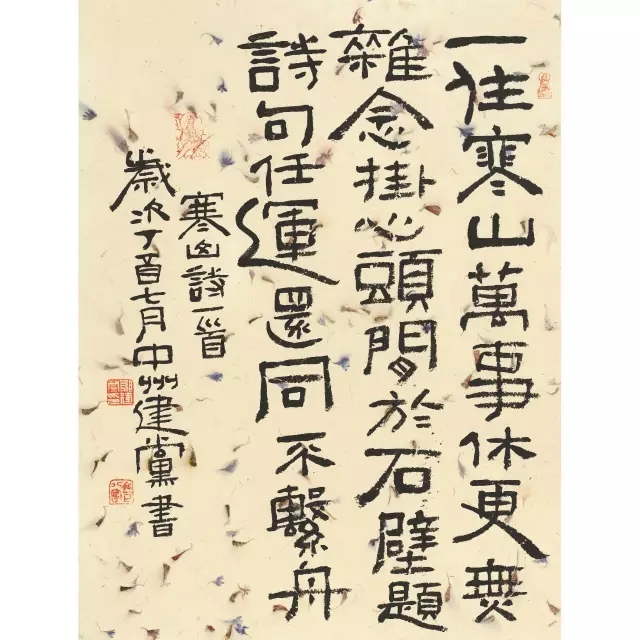 一住寒山萬事休更無
雜念掛心頭閒於石壁題
詩句任運還同不繫舟
寒山詩一首
歲次丁酉七月中州建黨書